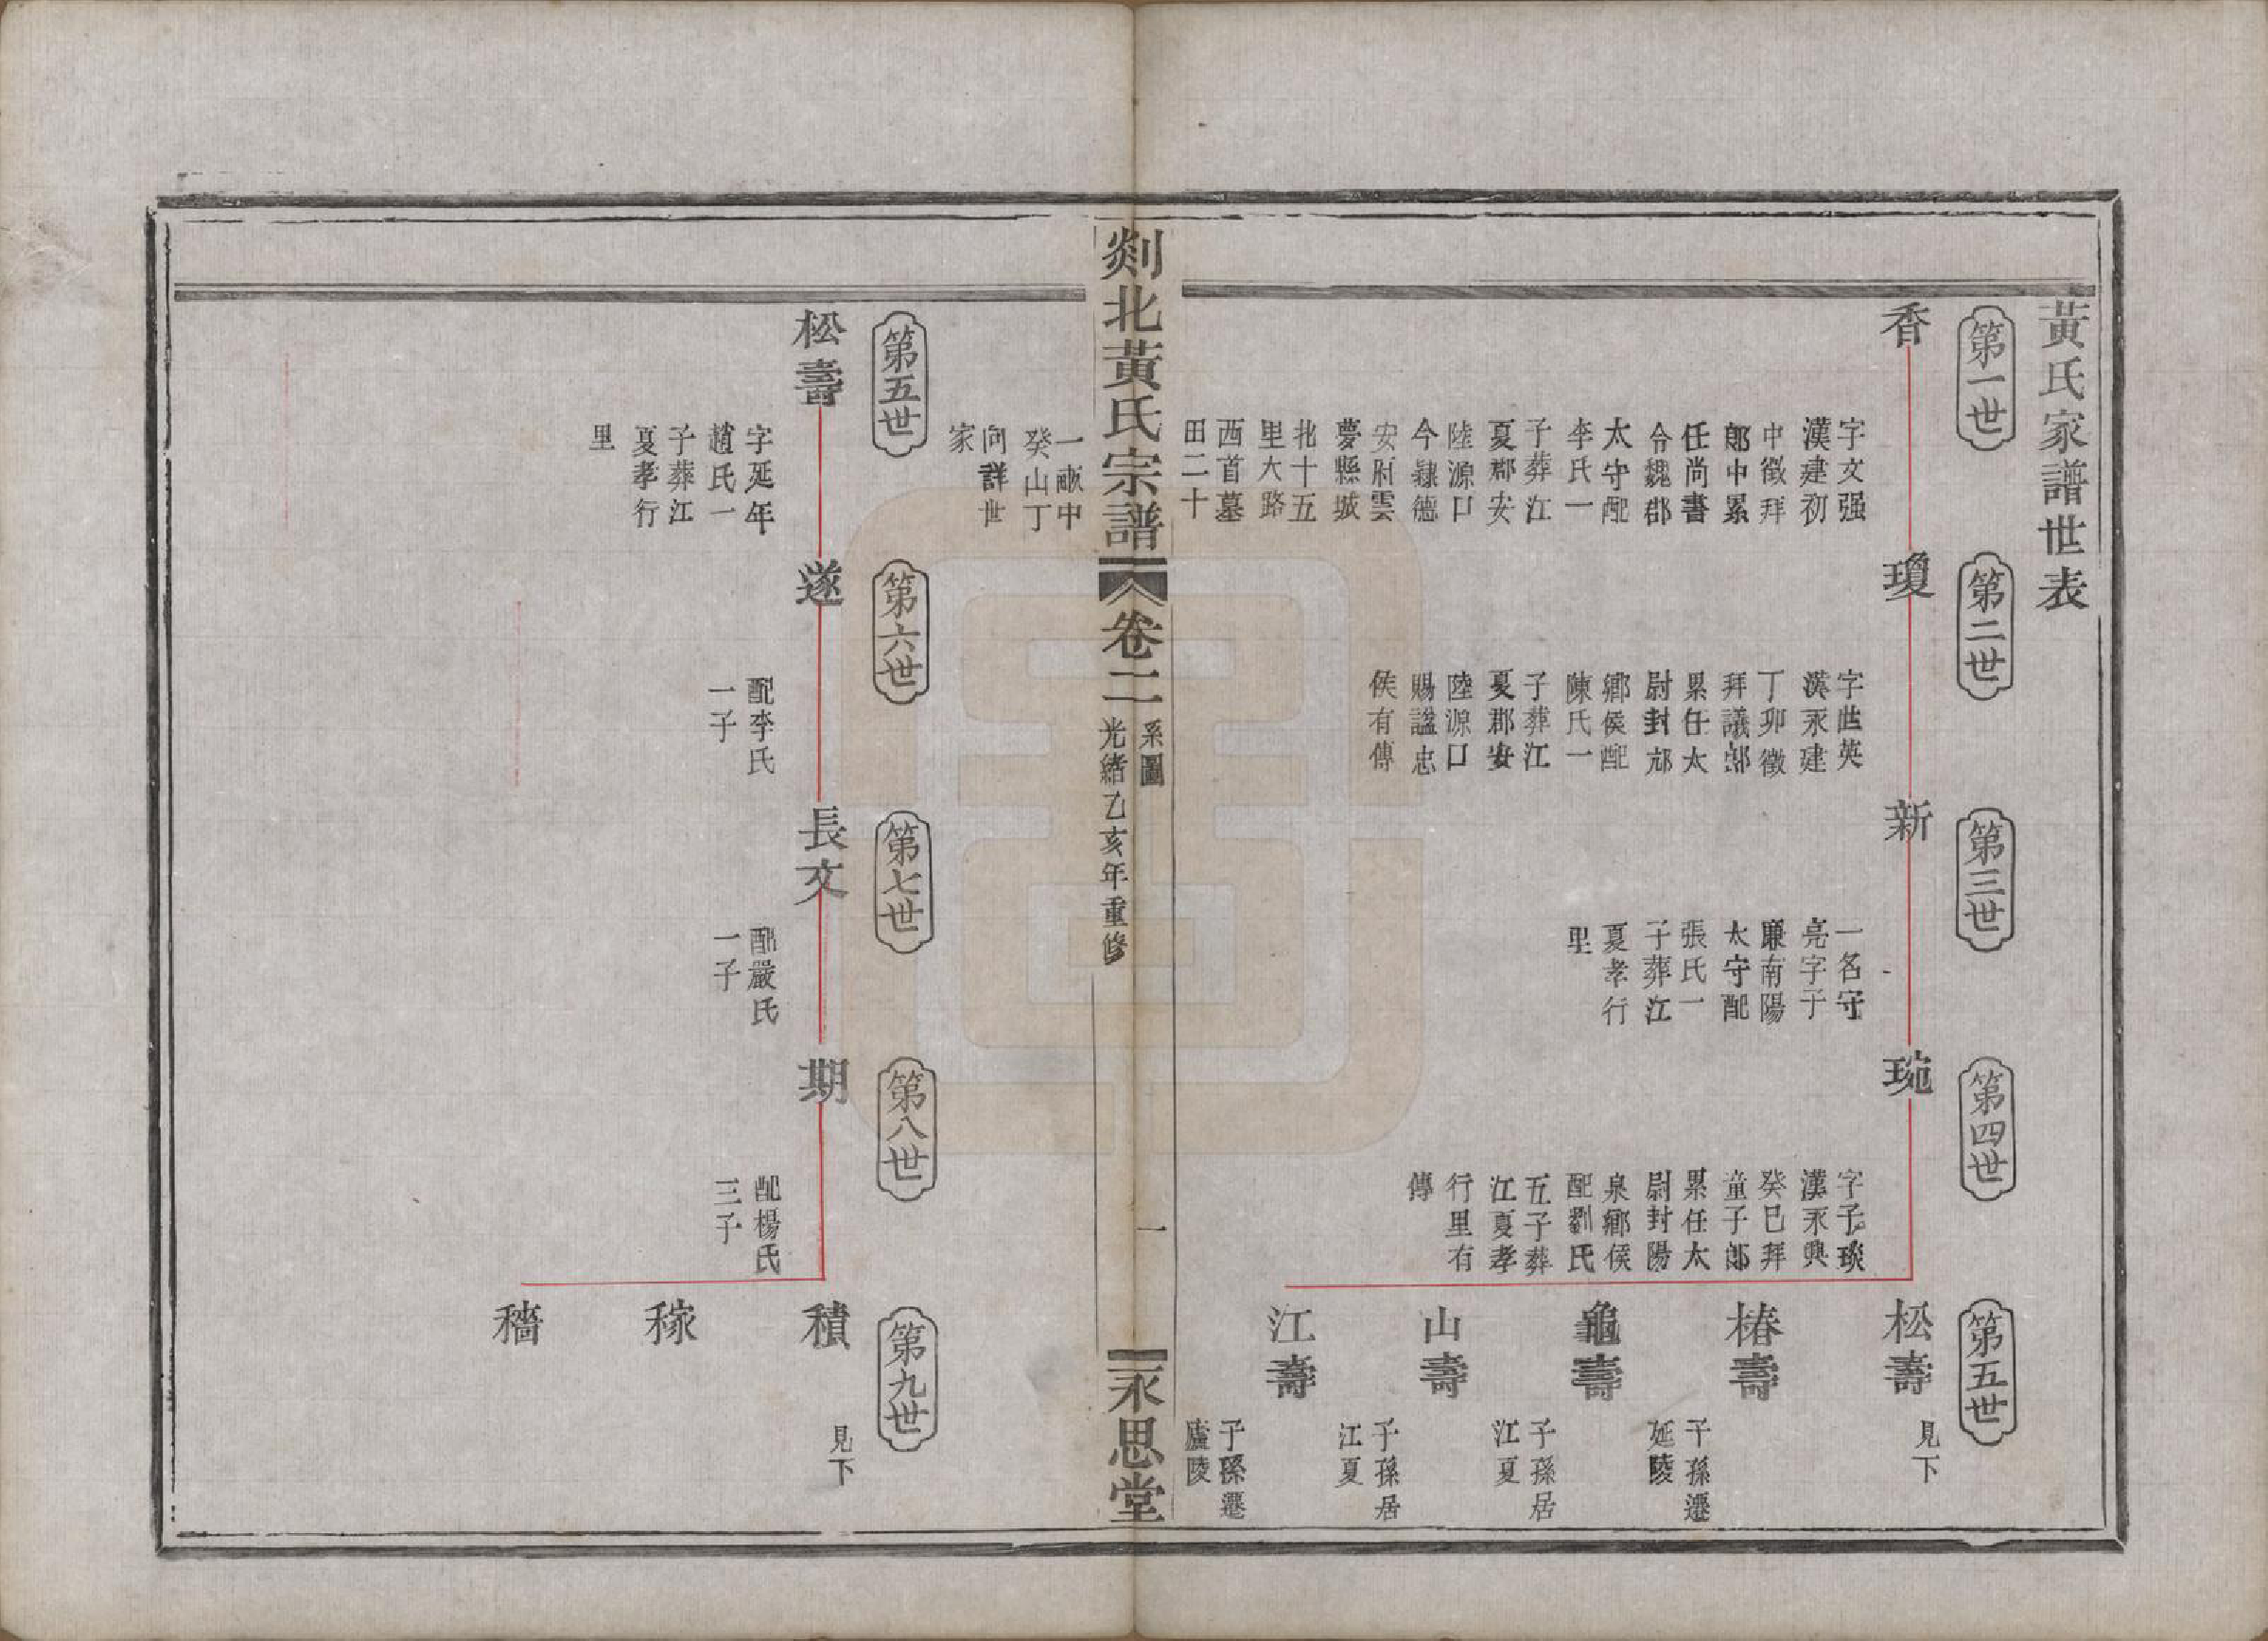 黃氏家譜世表
第一世
香
字文强
漢建初
中徵拜
郎中累
任尚書
令魏郡
太守配
李氏一
子葬江
夏郡安
陸源口
今隸德
安府雲
夢縣城
北十五
里大路
西首墓
田二十
一畝中
癸山丁
向詳世
家
第二世
瓊
字世英
漢永建
丁卯徵
拜議郎
累任太
尉封邟
鄉侯配
陳氏一
子葬江
夏郡安
陸源口
賜謚忠
侯有傳
第三世
新
一名守
亮字子
廉南陽
太守配
張氏一
子葬江
夏孝行
里
第四世
琬
字子琰
漢永興
癸巳拜
童子郎
累任太
尉封陽
泉鄉侯
配劉氏
五子葬
江夏孝
行里有
傳
第五世
松壽
見下
椿壽
子孫遷
延陵
龜壽
子孫居
江夏
山壽
子孫居
江夏
江壽
子孫遷
廬陵
剡北黃氏宗譜
卷二
系圖
光緒乙亥年重修
一
永思堂
第五世
松壽
字延年
趙氏一
子葬江
夏孝行
里
第六世
遂
配李氏
一子
第七世
長文
配嚴氏
一子
第八世
期
配楊氏
三子
第九世
積
見下
稼
穡